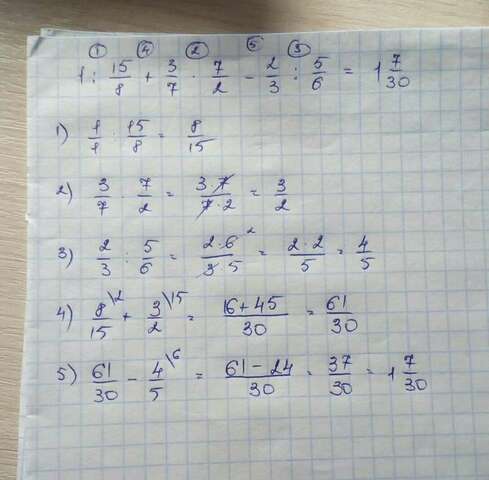 ① ④ ② ⑤ ③
1 : 15/8 + 3/7 · 7/2 − 2/3 : 5/6 = 1 7/30
1) 1/1 : 15/8 = 8/15
2) 3/7 · 7/2 = 3·7/7·2 = 3/2
3) 2/3 : 5/6 = 2·6²/3·5 = 2·2/5 = 4/5
4) 8/15\2 + 3/2\15 = 16+45/30 = 61/30
5) 61/30 − 4/5\6 = 61−24/30 = 37/30 = 1 7/30